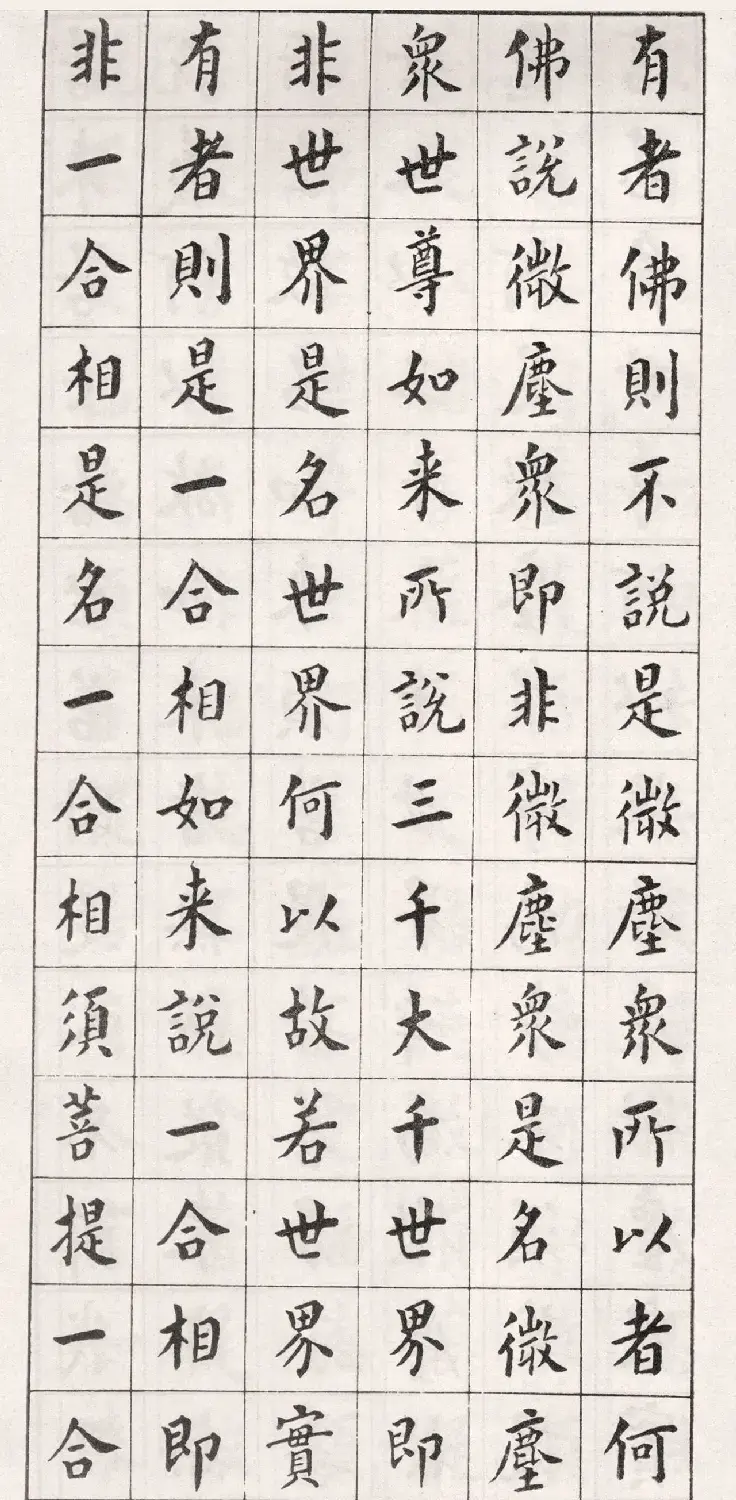 有者佛則不說是微塵眾所以者何
佛說微塵眾即非微塵眾是名微塵
眾世尊如来所說三千大千世界即
非世界是名世界何以故若世界實
有者則是一合相如来說一合相即
非一合相是名一合相須菩提一合